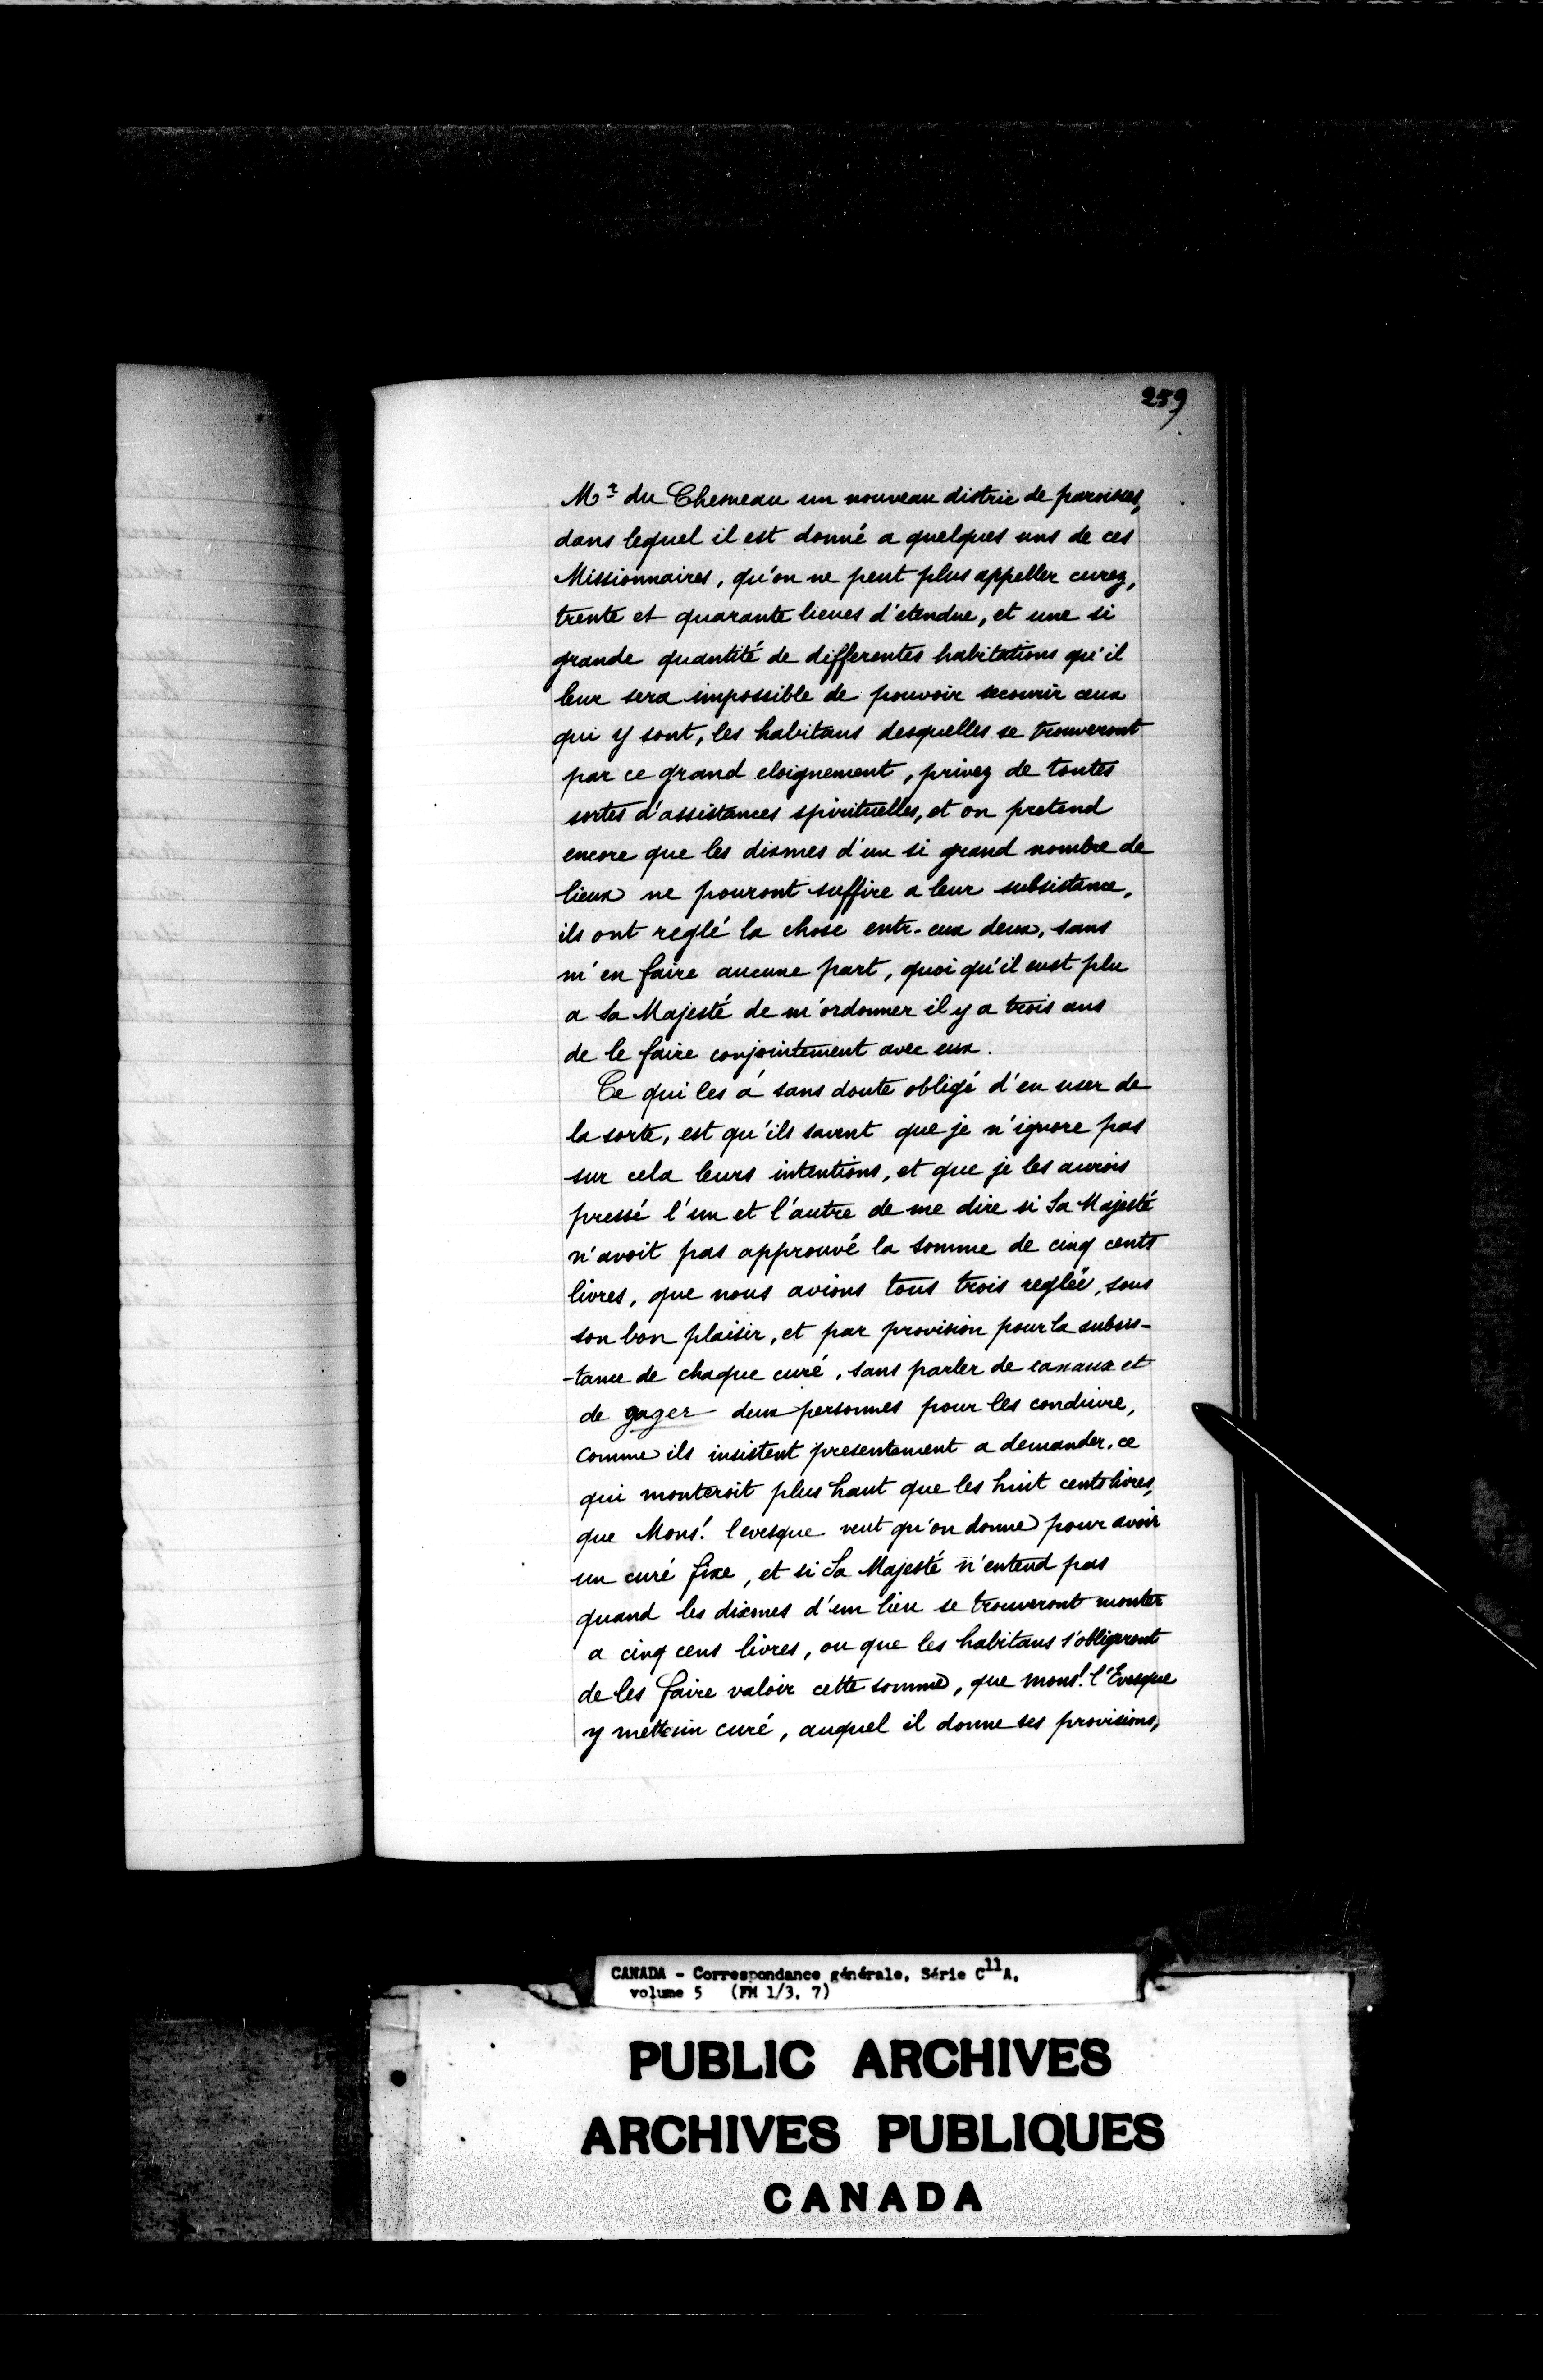 259
Mr du Chesneau un nouveau distric de paroisses,
dans lequel il est donné a quelques uns de ces
Missionnaires, qu'on ne peut plus appeller curez,
trente et quarante lieues d'etendue, et une si
grande quantité de differentes habitations qu'il
leur sera impossible de pouvoir secourir ceux
qui y sont, les habitans desquelles se trouveront
par ce grand eloignement, privez de toutes
sortes d'assistances spirituelles, et on pretend
encore que les dixmes d'un si grand nombre de
lieux ne pouront suffire a leur subsistance,
ils ont reglé la chose entr-eux deux, sans
m'en faire aucune part, quoi qu'il eust plu
a Sa Majesté de m'ordonner il y a trois ans
de le faire conjointement avec eux.
Ce qui les á sans doute obligé d'en user de
la sorte, est qu'ils savent que je n'ignore pas
sur cela leurs intentions, et que je les aurois
pressé l'un et l'autre de me dire si Sa Majesté
n'avoit pas approuvé la somme de cinq cents
livres, que nous avions tous trois reglée, sous
son bon plaisir, et par provision pour la subsis-
-tance de chaque curé, sans parler de canaux et
de gager deux personnes pour les conduire,
comme ils insistent presentement a demander, ce
qui monteroit plus haut que les huit cents livres,
que Mons! l'evesque veut qu'on donne pour avoir
un curé fixe, et si Sa Majesté n'entend pas
quand les dixmes d'un lieu se trouveront monter
a cinq cens livres, ou que les habitans s'obligeront
de les faire valoir cette somme, que mons! l'Evesque
y mette un curé, auquel il donne ses provisions,
CANADA - Correspondance générale, Série C11A,
volume 5 (FM 1/3, 7)
PUBLIC ARCHIVES
ARCHIVES PUBLIQUES
CANADA